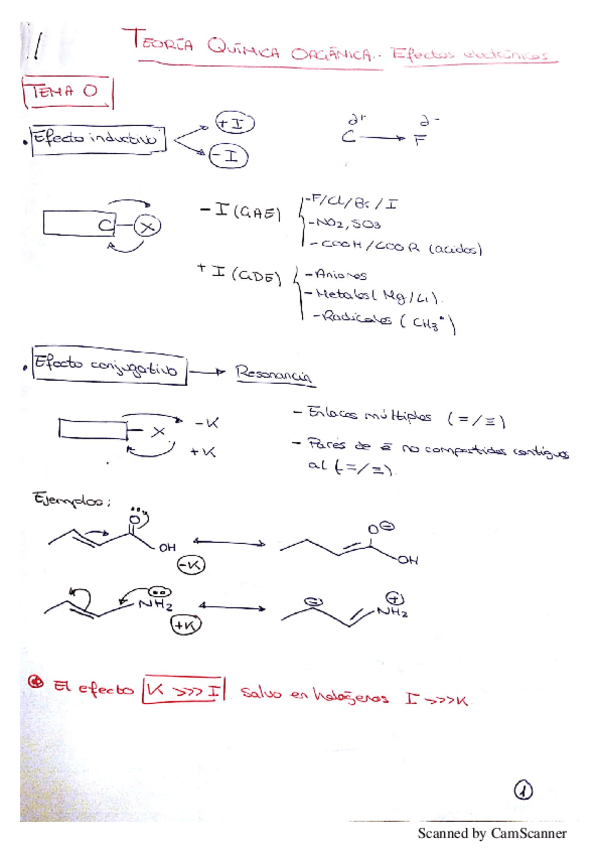 TEORÍA QUÍMICA ORGÁNICA.. Efectos electrónicos
TEMA 0
• Efecto inductivo
+I
-I
∂+ ∂-
C → F
C - X
-I (GAE)
-F/Cl/Br/I
-NO2, SO3
-COOH/COOR (ácidos)
+I (GDE)
-Aniones
-Metales (Mg/Li).
-Radicales (CH3•)
• Efecto conjugativo → Resonancia
X
-K
+K
- Enlaces múltiples (=/≡)
- Pares de ē no compartidos contiguos
al (=/≡).
Ejemplos:
O
OH
-K
O⊖
OH
NH2
+K
⊖
⊕
NH2
El efecto K >>> I salvo en halógenos I >>> K
1
Scanned by CamScanner